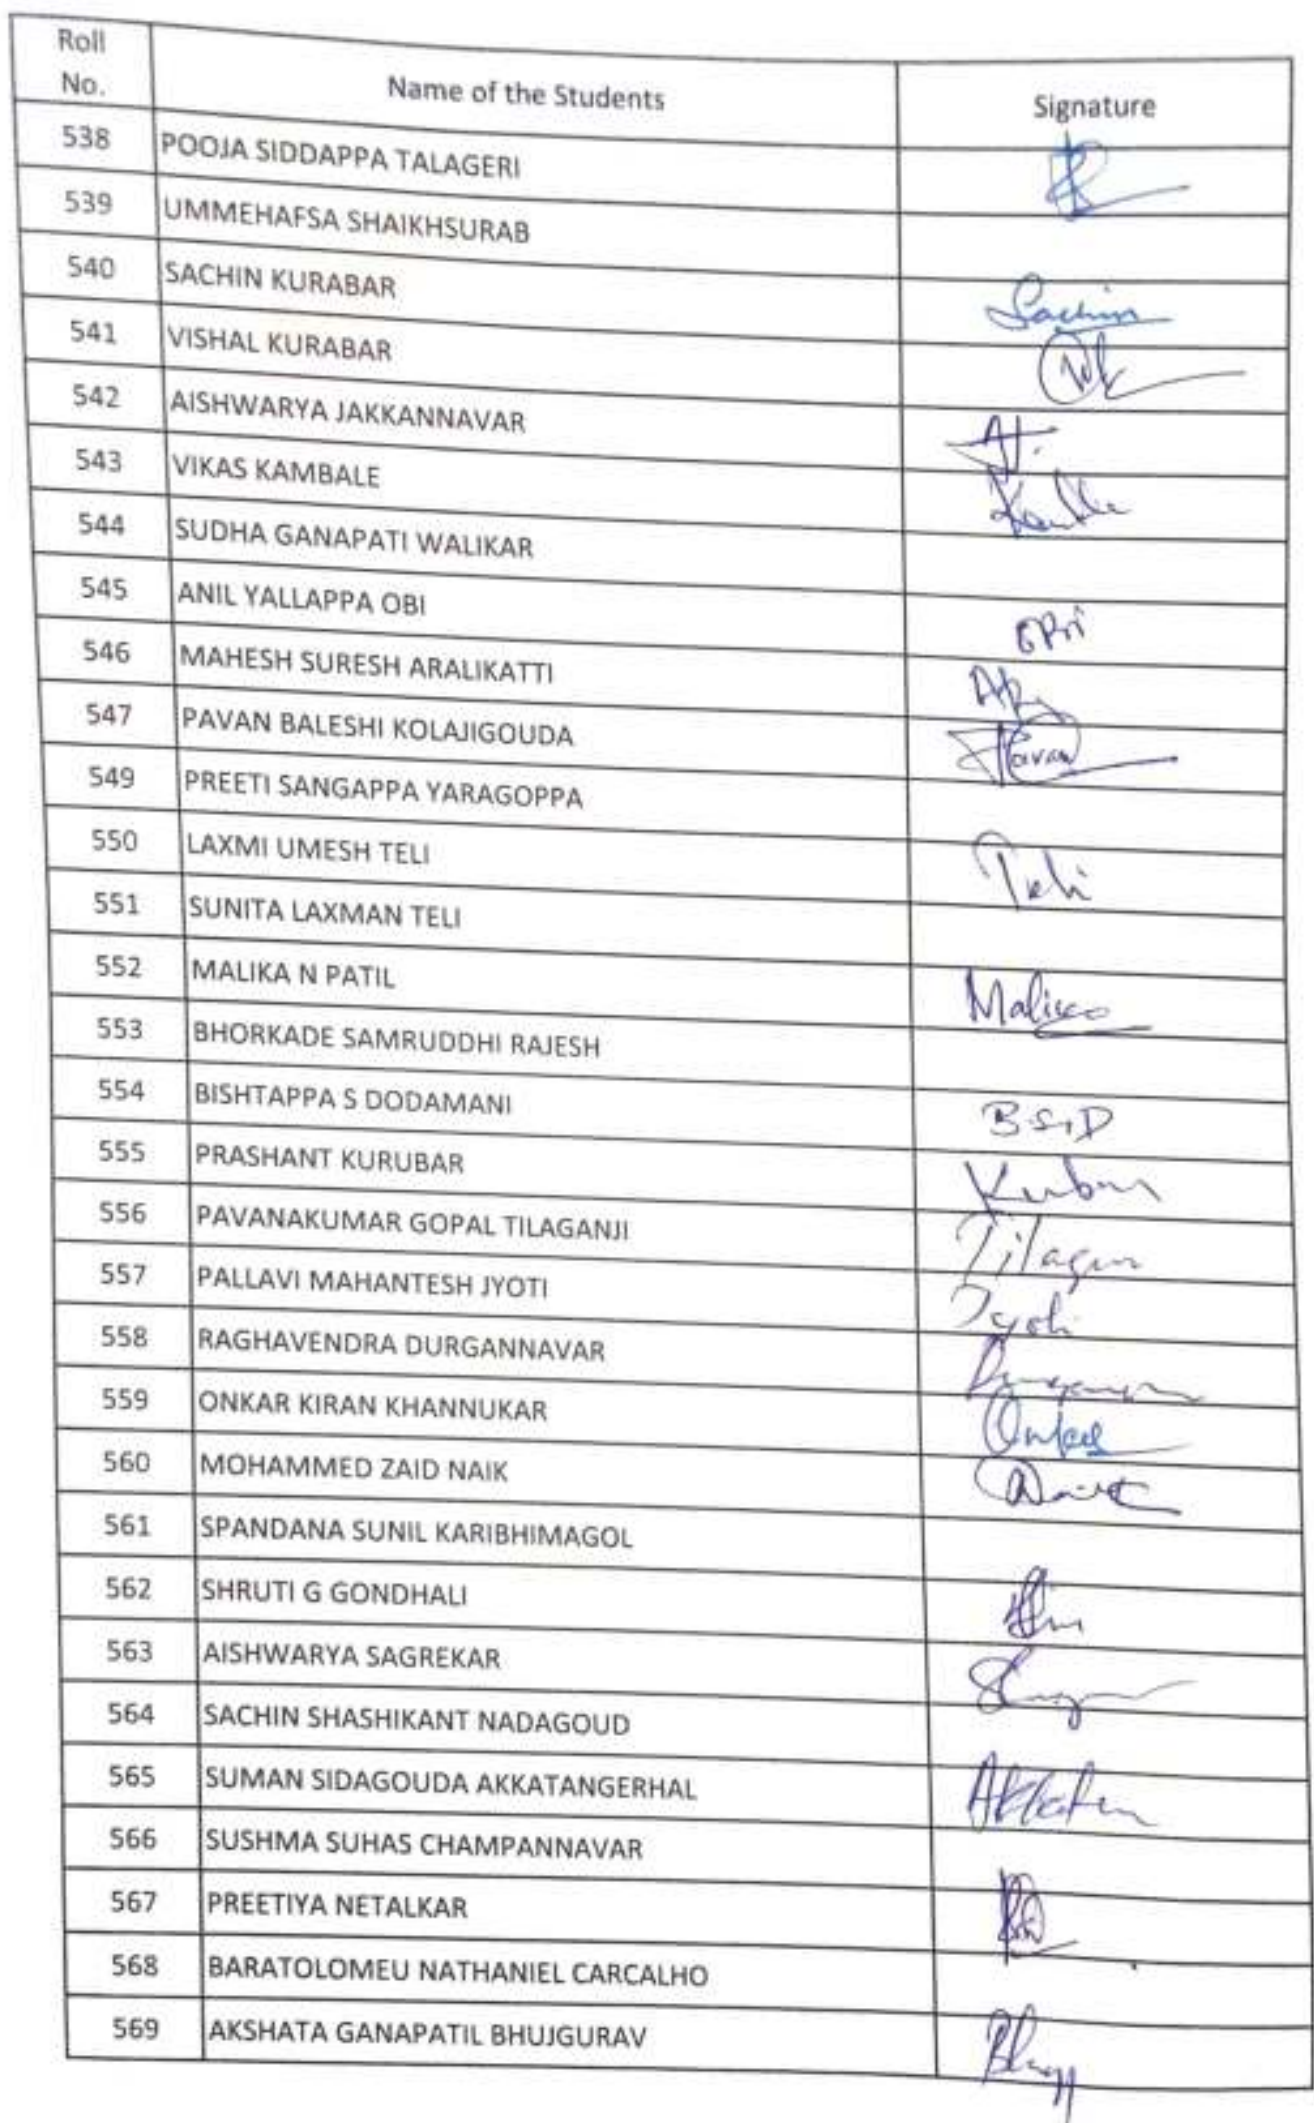 Roll No. Name of the Students Signature
538 POOJA SIDDAPPA TALAGERI
539 UMMEHAFSA SHAIKHSURAB
540 SACHIN KURABAR Sachin
541 VISHAL KURABAR
542 AISHWARYA JAKKANNAVAR
543 VIKAS KAMBALE
544 SUDHA GANAPATI WALIKAR
545 ANIL YALLAPPA OBI
546 MAHESH SURESH ARALIKATTI
547 PAVAN BALESHI KOLAJIGOUDA Pavan
549 PREETI SANGAPPA YARAGOPPA
550 LAXMI UMESH TELI Teli
551 SUNITA LAXMAN TELI
552 MALIKA N PATIL
553 BHORKADE SAMRUDDHI RAJESH
554 BISHTAPPA S DODAMANI B.S.D
555 PRASHANT KURUBAR
556 PAVANAKUMAR GOPAL TILAGANJI
557 PALLAVI MAHANTESH JYOTI Jyoti
558 RAGHAVENDRA DURGANNAVAR
559 ONKAR KIRAN KHANNUKAR
560 MOHAMMED ZAID NAIK Naik
561 SPANDANA SUNIL KARIBHIMAGOL
562 SHRUTI G GONDHALI
563 AISHWARYA SAGREKAR
564 SACHIN SHASHIKANT NADAGOUD
565 SUMAN SIDAGOUDA AKKATANGERHAL
566 SUSHMA SUHAS CHAMPANNAVAR
567 PREETIYA NETALKAR
568 BARATOLOMEU NATHANIEL CARCALHO
569 AKSHATA GANAPATIL BHUJGURAV